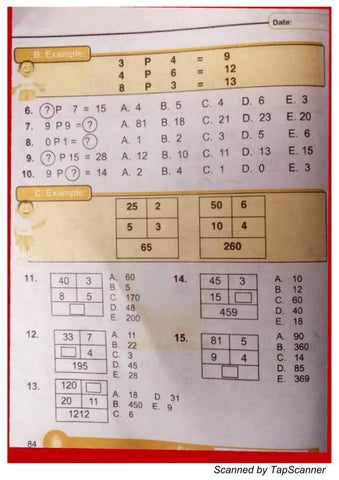 Date:
B. Example:
3 P 4 = 9
4 P 6 = 12
8 P 3 = 13
6. ? P 7 = 15 A. 4 B. 5 C. 4 D. 6 E. 3
7. 9 P 9 = ? A. 81 B. 18 C. 21 D. 23 E. 20
8. 0 P 1 = ? A. 1 B. 2 C. 3 D. 5 E. 6
9. ? P 15 = 28 A. 12 B. 10 C. 11 D. 13 E. 15
10. 9 P ? = 14 A. 2 B. 4 C. 1 D. 0 E. 3
C. Example:
25 2 50 6
5 3 10 4
65 260
11. 40 3 A. 60
8 5 B. 5
C. 170
D. 48
E. 200
14. 45 3 A. 10
15 B. 12
459 C. 60
D. 40
E. 18
12. 33 7 A. 11
4 B. 22
195 C. 3
D. 45
E. 28
15. 81 5 A. 90
9 4 B. 360
C. 14
D. 85
E. 369
13. 120
20 11 A. 18 D. 31
1212 B. 450 E. 9
C. 6
84
Scanned by TapScanner